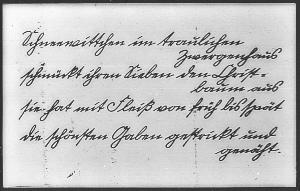 Schneewittchen im traulichen
Zwergenhaus
schmückt ihren Sieben den Christ-
baum aus
sie hat mit Fleiß von früh bis spät
die schönsten Gaben gestrickt und
genäht.